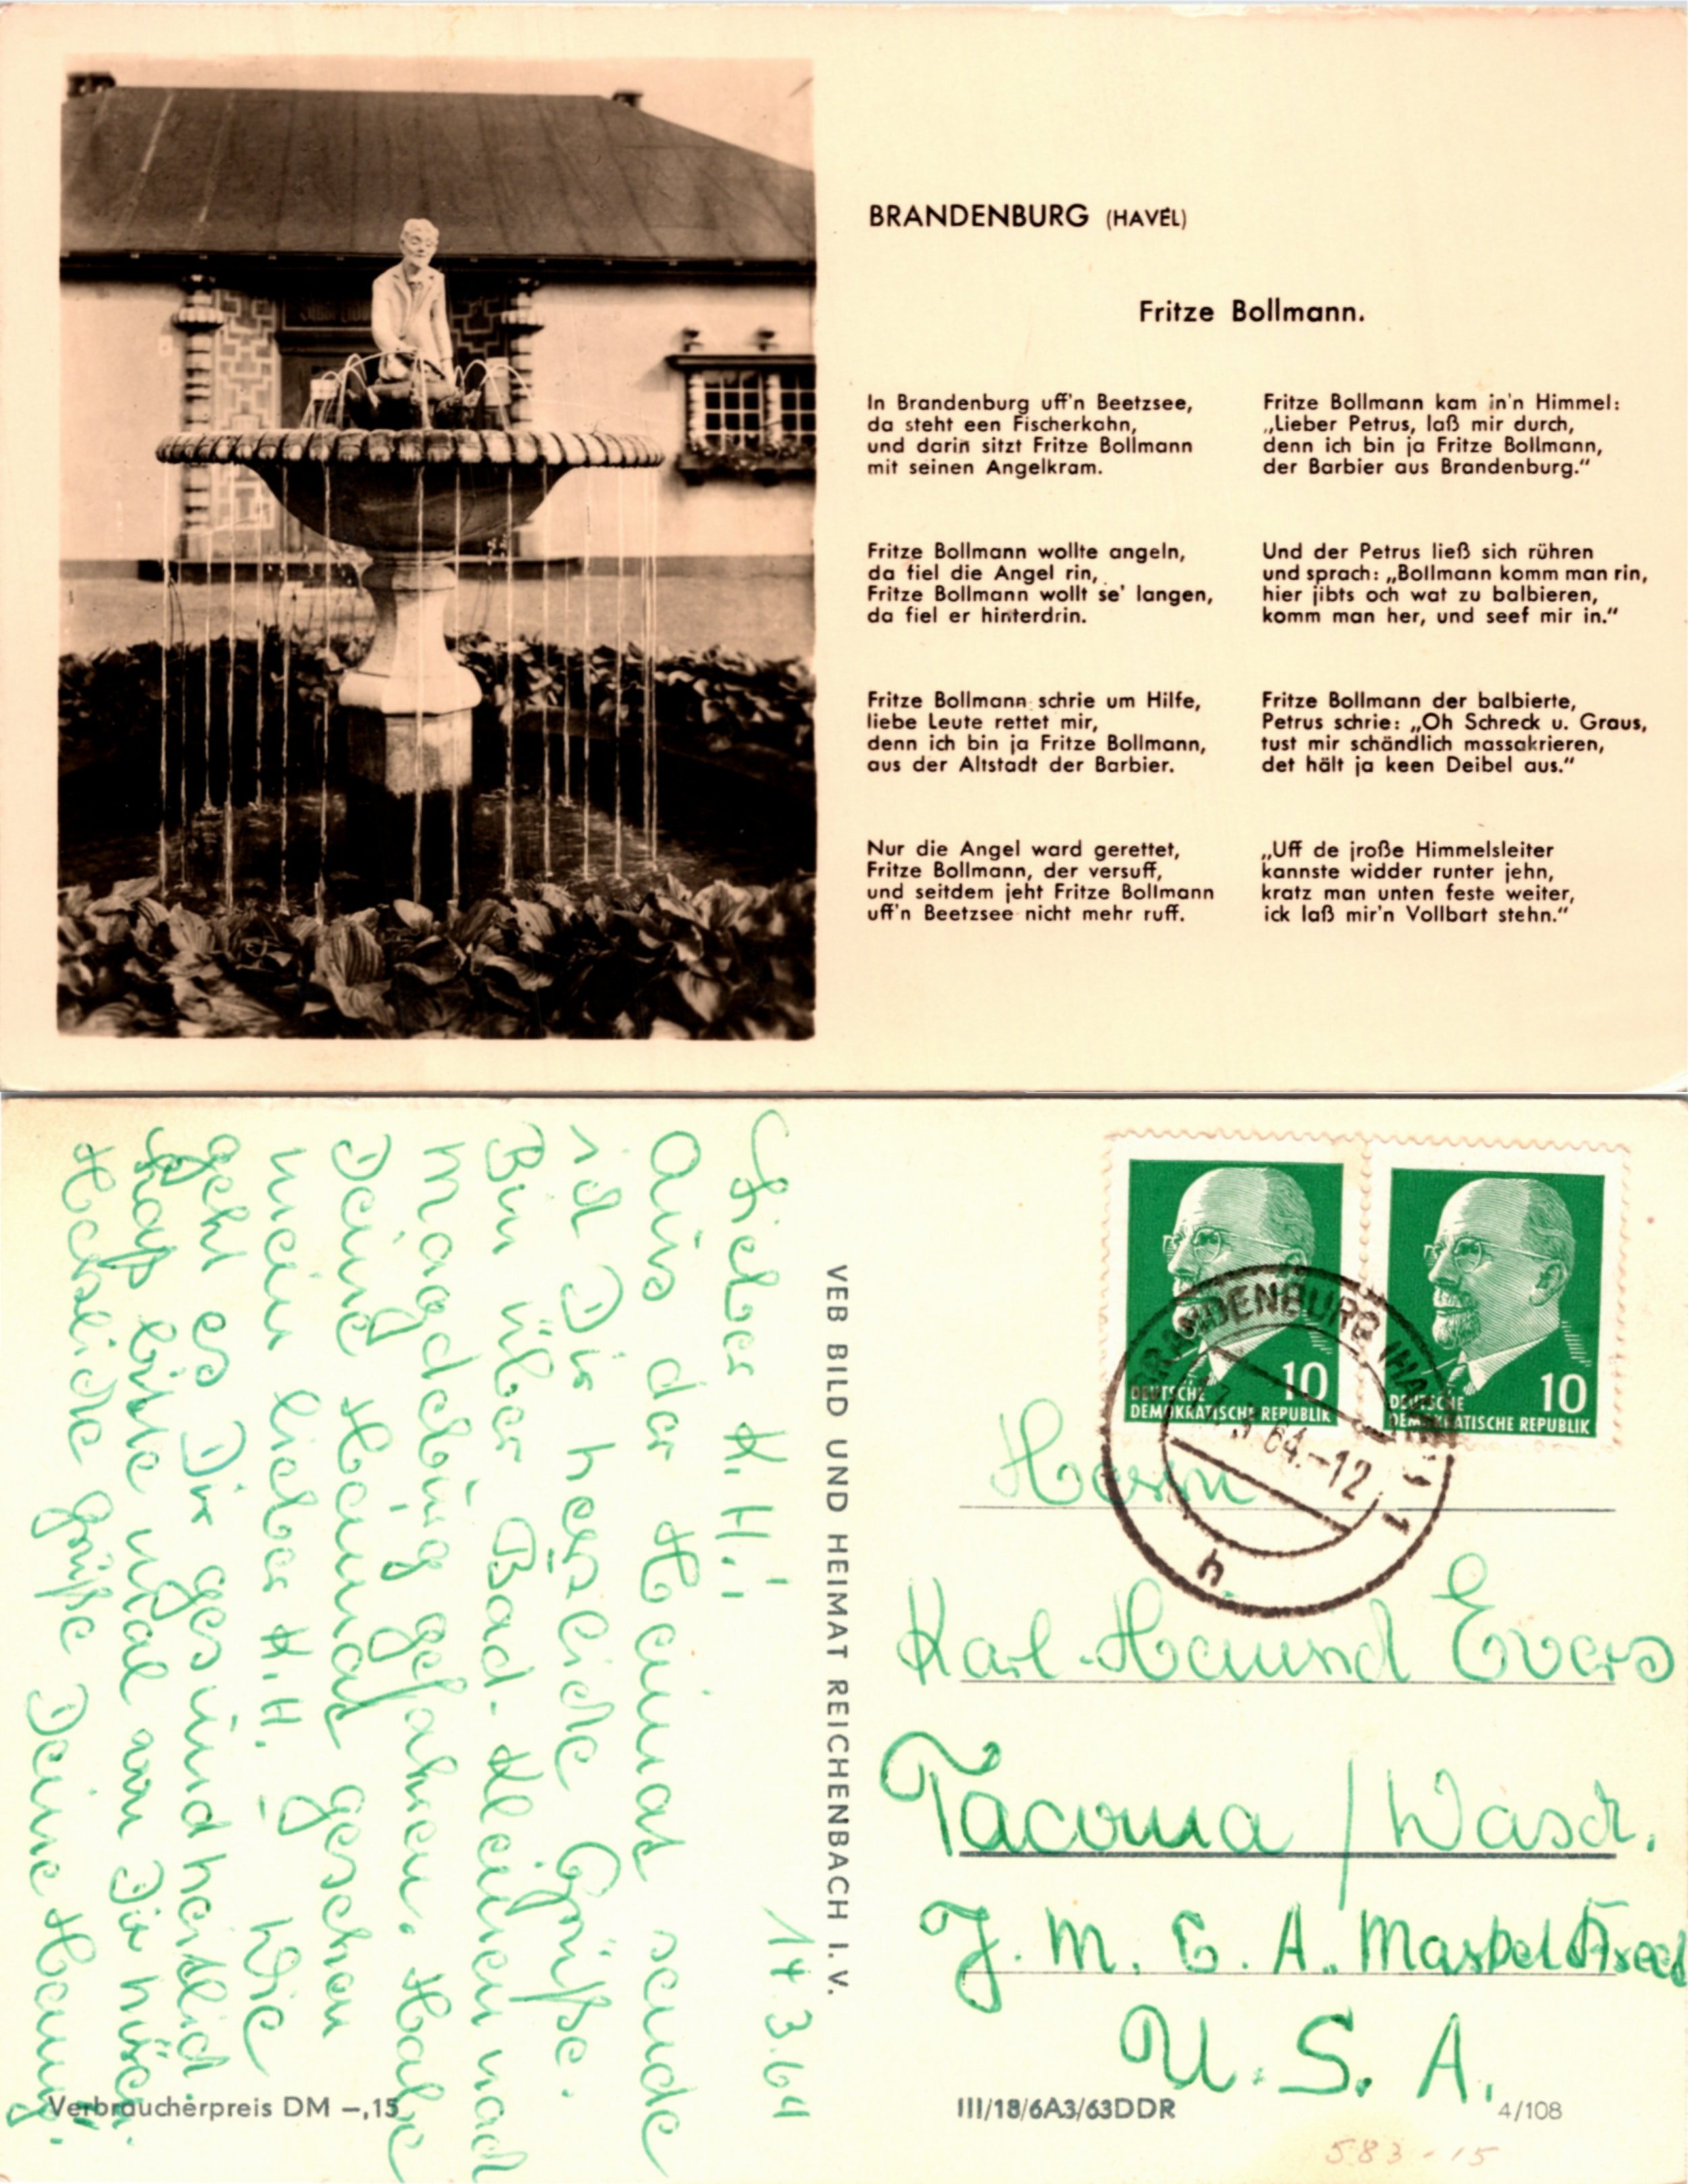 BRANDENBURG (HAVEL)
Fritze Bollmann.
In Brandenburg uff'n Beetzsee,
da steht een Fischerkahn,
und darin sitzt Fritze Bollmann
mit seinen Angelkram.
Fritze Bollmann wollte angeln,
da fiel die Angel rin,
Fritze Bollmann wollt se' langen,
da fiel er hinterdrin.
Fritze Bollmann schrie um Hilfe,
liebe Leute rettet mir,
denn ich bin ja Fritze Bollmann,
aus der Altstadt der Barbier.
Nur die Angel ward gerettet,
Fritze Bollmann, der versuff,
und seitdem jeht Fritze Bollmann
uff'n Beetzsee nicht mehr ruff.
Fritze Bollmann kam in'n Himmel:
„Lieber Petrus, laß mir durch,
denn ich bin ja Fritze Bollmann,
der Barbier aus Brandenburg.“
Und der Petrus ließ sich rühren
und sprach: „Bollmann komm man rin,
hier jibts och wat zu balbieren,
komm man her, und seef mir in.“
Fritze Bollmann der balbierte,
Petrus schrie: „Oh Schreck u. Graus,
tust mir schändlich massakrieren,
det hält ja keen Deibel aus.“
„Uff de jroße Himmelsleiter
kannste widder runter jehn,
kratz man unten feste weiter,
ick laß mir'n Vollbart stehn.“
14.3.64
Lieber K. H.!
Aus der Heimat sende
ich Dir herzliche Grüße.
Bin über Bad-Kleinen nach
Magdeburg gefahren. Habe
Deine Heimat gesehen
mein lieber K. H. - Wie
geht es Dir gesundheitlich
bitte mal von Dir hören.
Herzliche Grüße Deine
VEB BILD UND HEIMAT REICHENBACH I. V.
10
DEUTSCHE
DEMOKRATISCHE REPUBLIK
10
DEUTSCHE
DEMOKRATISCHE REPUBLIK
BRANDENBURG (HAVEL) 1
64.-12
h
Herrn
Karl-Heinrich Evers
Tacoma / Wasch.
U. S. A.
Verbraucherpreis DM —,15
III/18/6A3/63DDR
4/108
583-15